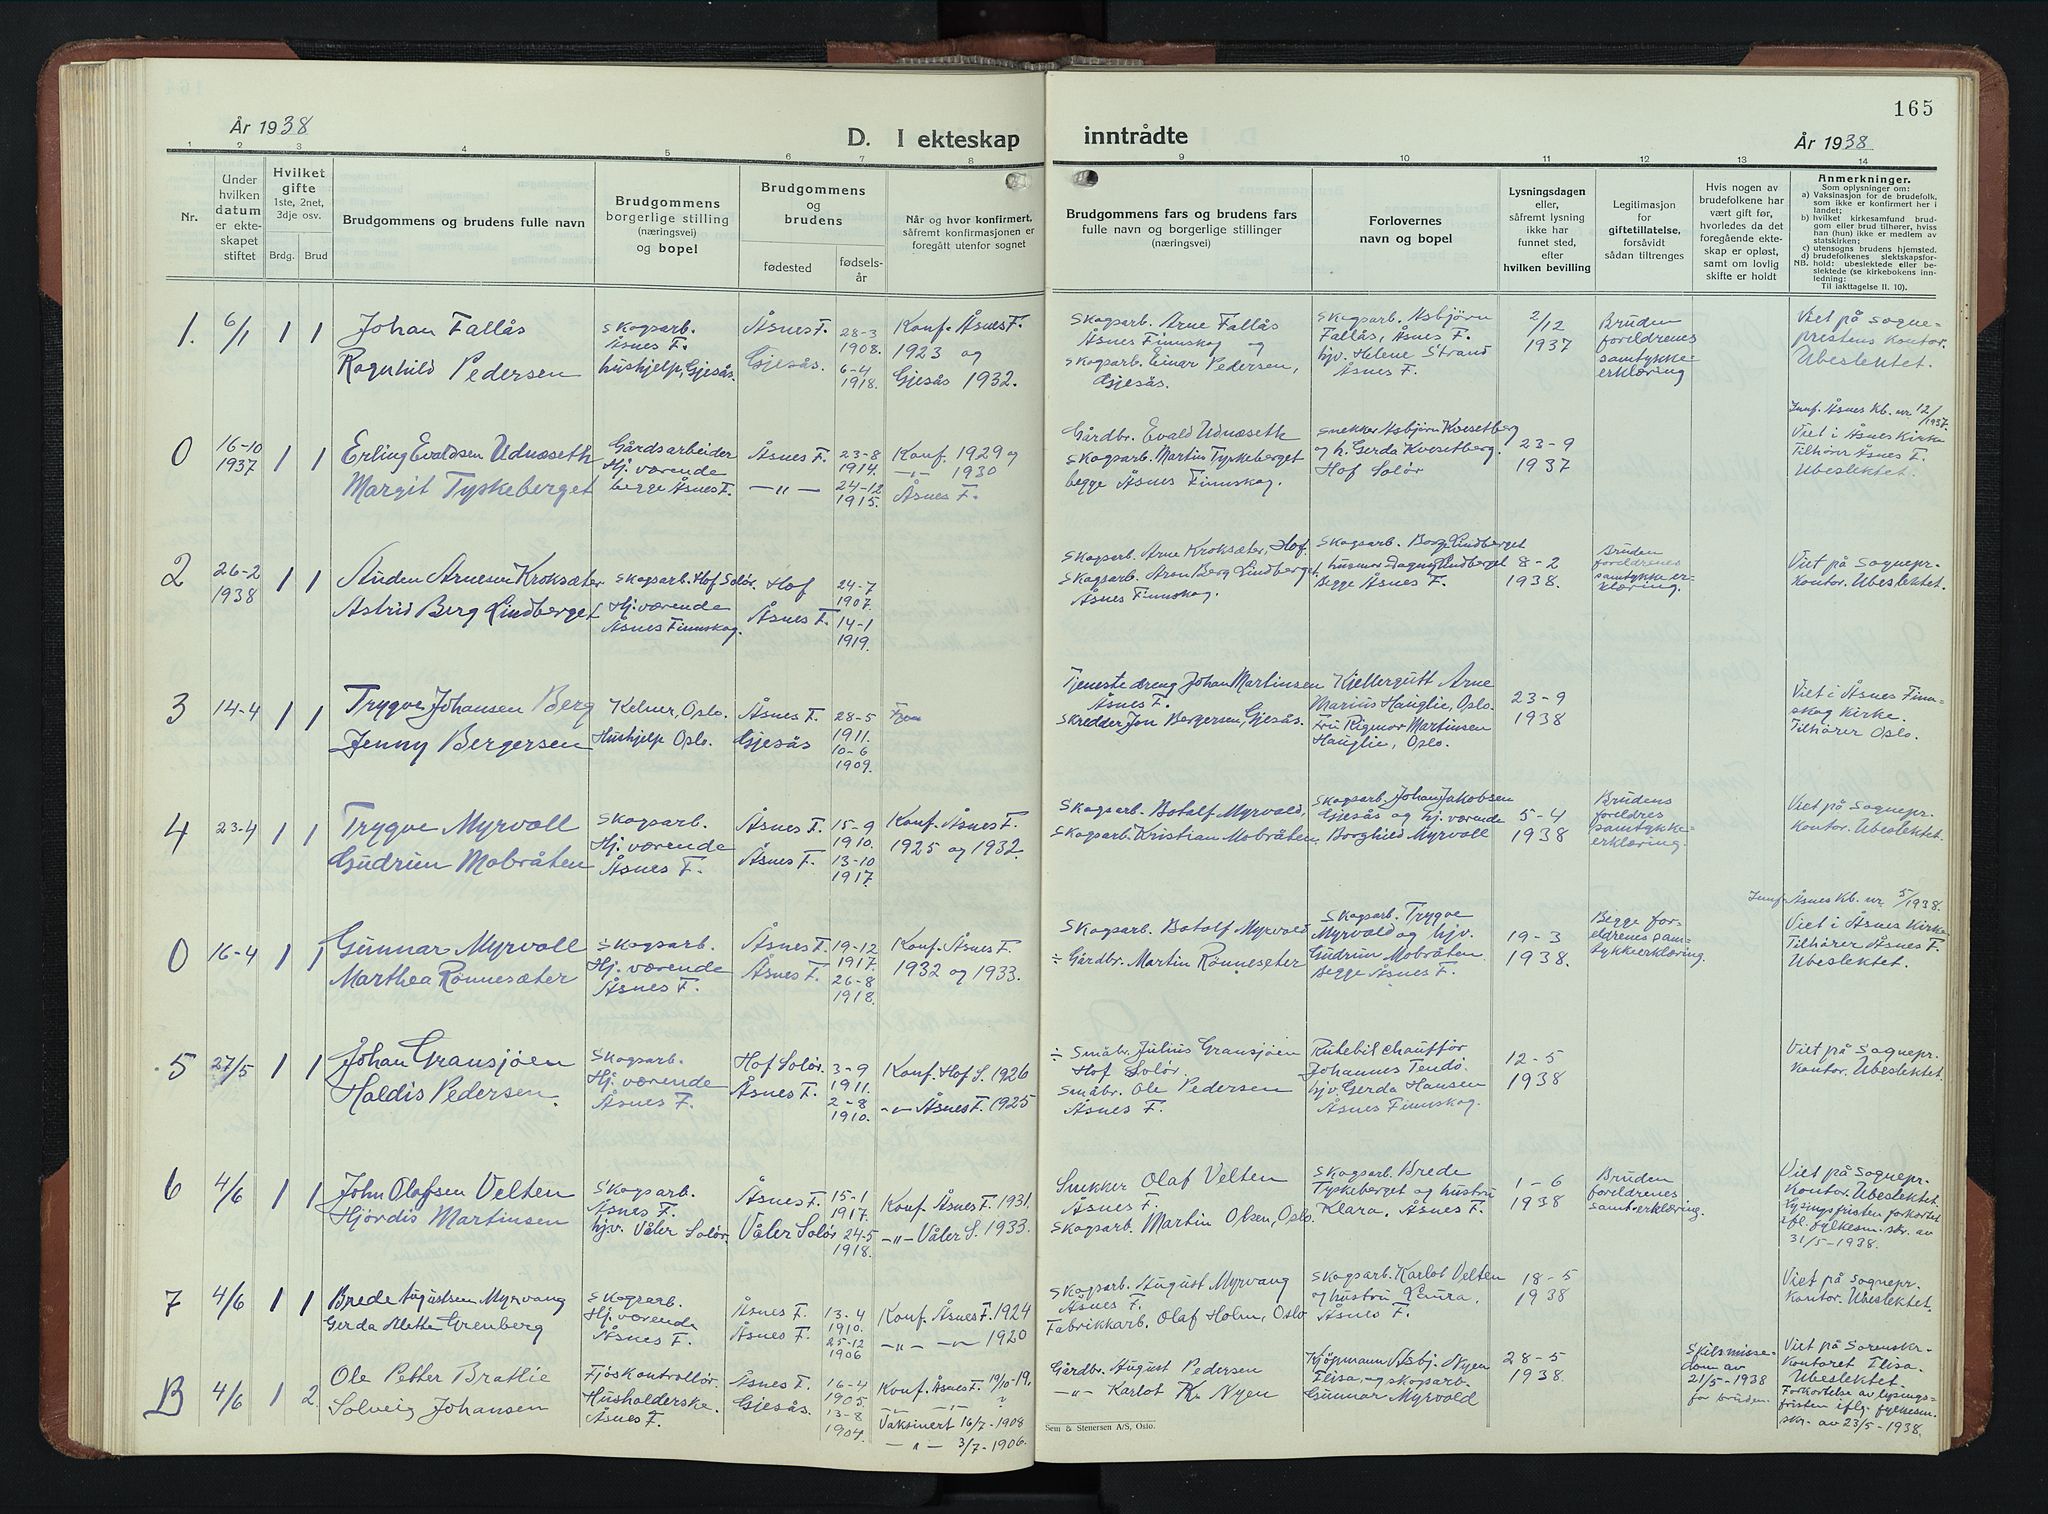 165
År 1938
D. I ekteskap inntrådte
År 1938
1 2 3 4 5 6 7 8 9 10 11 12 13 14
Nr.
Under hvilken datum er ekteskapet stiftet
Hvilket gifte 1ste, 2net, 3dje osv.
Brdg. Brud
Brudgommens og brudens fulle navn
Brudgommens borgerlige stilling (næringsvei) og bopel
Brudgommens og brudens
fødested
fødselsår
Når og hvor konfirmert, såfremt konfirmasjonen er foregått utenfor sognet
Brudgommens fars og brudens fars fulle navn og borgerlige stillinger (næringsvei)
Forlovernes navn og bopel
Lysningsdagen eller, såfremt lysning ikke har funnet sted, efter hvilken bevilling
Legitimasjon for giftetillatelse, forsåvidt sådan tiltrenges
Hvis nogen av brudefolkene har vært gift før, hvorledes da det foregående ekteskap er opløst, samt om lovlig skifte er holdt
Anmerkninger.
Som oplysninger om:
a) Vaksinasjon for de brudefolk, som ikke er konfirmert her i landet;
b) hvilket kirkesamfund brudgom eller brud tilhører, hviss han (hun) ikke er medlem av statskirken;
c) utensogns brudens hjemsted.
d) brudefolkenes slektskapsforhold: ubeslektede eller beslektede (se kirkebokens innledning:
NB.
Til iakttagelse II. 10).
1. 6/1 1 1
Johan Fallås
Ragnhild Pedersen
skogsarb. Åsnes F.
hushjelp, Gjesås.
Åsnes F. 28-3 1908.
Gjesås. 6-4 1918.
Konf. Åsnes F. 1923 og Gjesås 1932.
Skogsarb. Arne Fallås
Åsnes Finnskog og
skogsarb. Einar Pedersen,
Gjesås.
Skogsarb. Asbjørn
Fallås, Åsnes F.
hjv. Helene Strand
Åsnes F.
2/12 1937
Bruden
foreldrenes
samtykke-
erklæring
Viet på sogne-
prestens kontor.
Ubeslektet.
0 16-10 1937 1 1
Erling Evaldsen Udnæseth
Margit Tyskeberget
Gårdsarbeider
Hj. værende
begge Åsnes F.
Åsnes F. 23-8 1914.
-"- 24-12 1915.
Konf. 1929 og
-"- 1930
Åsnes F.
Gårdbr. Evald Udnæseth
skogsarb. Martin Tyskeberget
begge Åsnes Finnskog.
snekker Asbjørn Kvesetberg
og h. Gerda Kvesetberg.
Hof Solør
23-9 1937
Jmnf. Åsnes Kb. nr 12/1937.
Viet i Åsnes Kirke
Tilhører Åsnes F.
Ubeslektet.
2 26-2 1938 1 1
Auden Arnesen Kroksæter
Astrid Berg Lindberget
skogsarb. Hof Solør.
Hj. værende
Åsnes Finnskog.
Hof 24-7 1907.
Åsnes F. 14-1 1919.
Skogsarb. Arne Kroksæter, Hof.
skogsarb. Aron Berg Lindberget,
Åsnes Finnskog.
Skogsarb. Borge Lindberget
husmor Dagny Lindberget
Begge Åsnes F.
8-2 1938.
Bruden
foreldrenes
samtykke er-
klæring.
Viet på sognepr.
Kontor. Ubeslektet.
3 14-4 1 1
Trygve Johansen Berg
Jenny Bergersen
Kelner, Oslo.
Hushjelp Oslo.
Åsnes F. 28-5 1911.
Gjesås 10-6 1909.
Tjenestedreng Johan Martinsen
Åsnes F.
Skredder Jon Bergersen, Gjesås.
Kjellergutt Arne
Marius Hauglie, Oslo.
Fru Rigmor Martinsen
Hauglie, Oslo.
23-9 1938
Viet i Åsnes Finn-
skog Kirke.
Tilhører Oslo.
4 23-4 1 1
Trygve Myrvoll
Gudrun Mobråten
Skogsarb.
Hj. værende
Åsnes F.
Åsnes F. 15-9 1910.
Åsnes F. 13-10 1917.
Konf. Åsnes F.
1925 og 1932.
Skogsarb. Botolf Myrvold,
skogsarb. Kristian Mobråten
Skogsarb. Johan Jakobsen
Gjesås og hj. værende
Borghild Myrvoll
5-4 1938
Brudens
foreldres
samtykke-
erklæring.
Viet på Sognepr.
Kontor. Ubeslektet.
0 16-4 1 1
Gunnar Myrvoll
Marthea Rønnesæter
Skogsarb.
Hj. værende
Åsnes F.
Åsnes F. 19-12 1917.
Åsnes F. 26-8 1918.
Konf. Åsnes F.
1932 og 1933.
Skogsarb. Botolf Myrvold
÷ Gårdbr. Martin Rønneseter
Skogsarb. Trygve
Myrvold og hjv.
Gudrun Mobråten.
Begge Åsnes F.
19-3 1938.
Begge for-
eldrenes sam-
tykkeerklæring.
Jmnf. Åsnes Kb. nr 5/1938.
Viet i Åsnes Kirke
Tilhører Åsnes F.
Ubeslektet.
5 27/5 1 1
Johan Gransjøen
Haldis Pedersen.
Skogsarb.
Hj. værende
Åsnes F.
Hof Solør. 3-9 1911.
Åsnes F. 2-8 1910.
Konf. Hof S. 1926
-"- Åsnes F. 1925
÷ Småbr. Julius Gransjøen
Hof Solør.
Småbr. Ole Pedersen
Åsnes F.
Rutebilchauffør
Johannes Tendø
hjv. Gerda Hansen
Åsnes Finnskog.
12-5 1938
Viet på Sognepr.
Kontor. Ubeslektet.
6 4/6 1 1
John Olafsen Velten
Hjørdis Martinsen
Skogsarb.
Åsnes F.
hjv. Våler Solør.
Åsnes F. 15-1 1917.
Våler Solør 24-5 1918.
Konf. Åsnes F. 1931.
-"- Våler S. 1933.
Snekker Olaf Velten
Åsnes F.
Skogsarb. Martin Olsen, Oslo.
Skogsarb. Brede
Tyskeberget og hustru
Klara, Åsnes F.
1-6 1938
Bruden
foreldrenes
samt.erklæring.
Viet på Sognepr.
Kontor. Ubeslektet.
Lysingsfristen forkortet
ifl. fylkesm. skr. av
31/5-1938.
7 4/6 1 1
Brede Augustsen Myrvang
Gerda Mette Grenberg
Skogsarb.
Hj. værende
Åsnes F.
Åsnes F. 13-4 1910.
Åsnes F. 25-12 1906
Konf. Åsnes F. 1924
-"- -"- 1920
Skogsarb. August Myrvang
Åsnes F.
Fabrikkarb. Olaf Holm, Oslo
Skogsarb. Karlot Velten
og hustru Laura,
Åsnes F.
18-5 1938
Viet på Sognepr.
Kontor. Ubeslektet.
B 4/6 1 2.
Ole Petter Bratlie
Solveig Johansen
Fjøskontrollør.
Husholderske.
Åsnes F.
Åsnes F. 16-4 1905.
Gjesås. 13-8 1904.
Konf. Åsnes F. 19/10-19.
-"- ?
Vaksinert 16/7-1908
-"- 3/7-1906.
Gårdbr. August Pedersen
-"- Karlot K. Nyen
Kjøpmann Asbj. Nyen
Flisa, og skogsarb.
Gunnar Myrvold
28-5 1938.
Skilsmisse-
dom av
21/5-1938
for bruden.
Viet på Sorenskr.
Kontoret Flisa.
Ubeslektet.
Forkortelse av lysings-
fristen iflg. fylkesm.
skr. av 23/5-1938.
Sem & Stenersen A/S, Oslo.